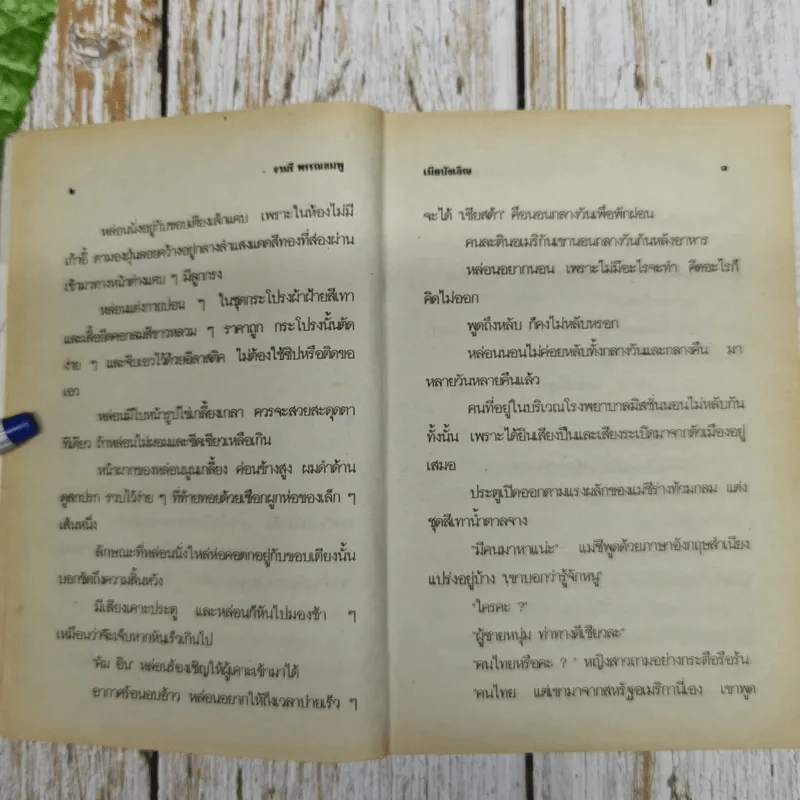 ๒
จามรี พรรณชมพู
หล่อนนั่งอยู่กับขอบเตียงเล็กแคบ เพราะในห้องไม่มี
เก้าอี้ ตามองฝุ่นลอยคว้างอยู่กลางลำแสงแดดสีทองที่ส่องผ่าน
เข้ามาทางหน้าต่างแคบ ๆ มีลูกกรง
หล่อนแต่งกายปอน ๆ ในชุดกระโปรงผ้าฝ้ายสีเทา
และเสื้อยืดคอกลมสีขาวหลวม ๆ ราคาถูก กระโปรงนั้นตัด
ง่าย ๆ และจีบเอวไว้ด้วยอีลาสติค ไม่ต้องใช้ซิปหรือติดขอ
เอว
หล่อนมีใบหน้ารูปไข่เกลี้ยงเกลา ควรจะสวยสะดุดตา
ทีเดียว ถ้าหล่อนไม่ผอมและซีดเซียวเหลือเกิน
หน้าผากของหล่อนนูนเกลี้ยง ค่อนข้างสูง ผมดำด้าน
ดูสกปรก รวบไว้ง่าย ๆ ที่ท้ายทอยด้วยเชือกผูกห่อของเล็ก ๆ
เส้นหนึ่ง
ลักษณะที่หล่อนนั่งไหล่ห่อคอตกอยู่กับขอบเตียงนั้น
บอกชัดถึงความสิ้นหวัง
มีเสียงเคาะประตู และหล่อนก็หันไปมองช้า ๆ
เหมือนว่าจะเจ็บหากหันเร็วเกินไป
"คัม อิน" หล่อนร้องเชิญให้ผู้เคาะเข้ามาได้
อากาศร้อนอบอ้าว หล่อนอยากให้ถึงเวลาบ่ายเร็ว ๆ
เมียบังเอิญ
๓
จะได้ "เซียสต้า" คือนอนกลางวันเพื่อพักผ่อน
คนละตินอเมริกันเขานอนกลางวันกันหลังอาหาร
หล่อนอยากนอน เพราะไม่มีอะไรจะทำ คิดอะไรก็
คิดไม่ออก
พูดถึงหลับ ก็คงไม่หลับหรอก
หล่อนนอนไม่ค่อยหลับทั้งกลางวันและกลางคืน มา
หลายวันหลายคืนแล้ว
คนที่อยู่ในบริเวณโรงพยาบาลมิสชั่นนอนไม่หลับกัน
ทั้งนั้น เพราะได้ยินเสียงปืนและเสียงระเบิดมาจากตัวเมืองอยู่
เสมอ
ประตูเปิดออกตามแรงผลักของแม่ชีร่างท้วมกลม แต่ง
ชุดสีเทาน้ำตาลจาง
"มีคนมาหาแน่ะ" แม่ชีพูดด้วยภาษาอังกฤษสำเนียง
แปร่งอยู่บ้าง "เขาบอกว่ารู้จักหนู"
"ใครคะ ?"
"ผู้ชายหนุ่ม ท่าทางดีเชียวละ"
"คนไทยหรือคะ ?" หญิงสาวถามอย่างกระตือรือร้น
"คนไทย แต่เขามาจากสหรัฐอเมริกานี่เอง เขาพูด